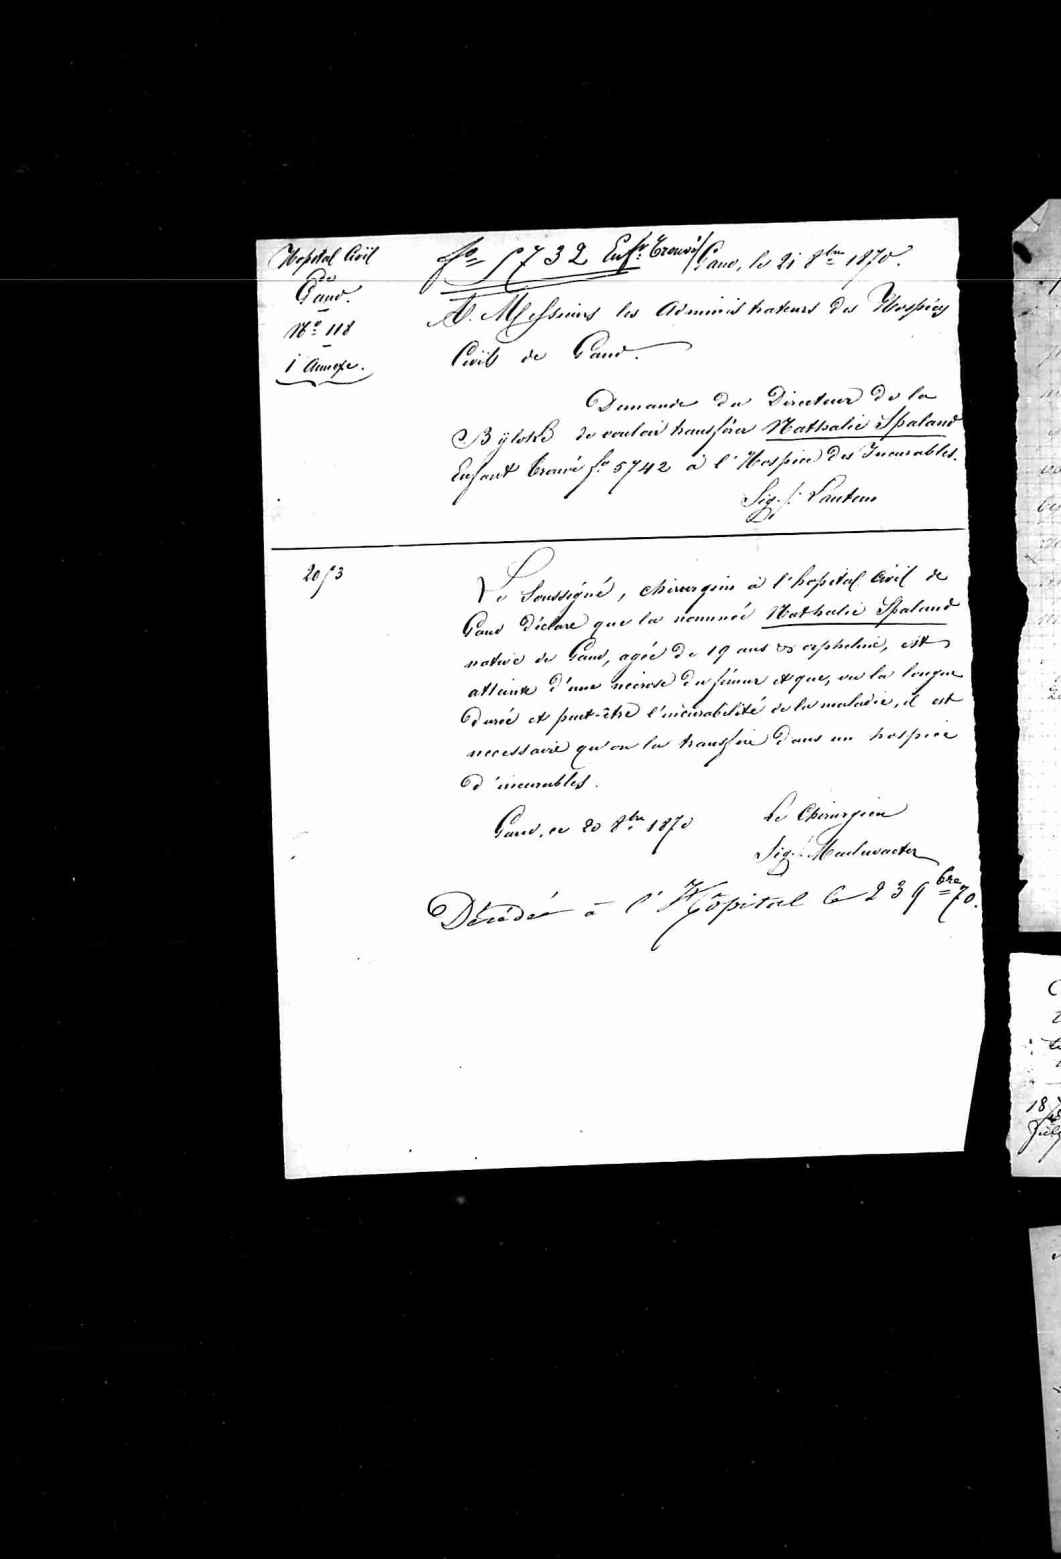 Hopital Civil
de
Gand.
N° 118
1 Annexe.
f° 5732 Enf. Trouvé
Gand, le 21 8bre 1870.
A Messieurs les Administrateurs des Hospices
Civils de Gand.
Demande du Directeur de la
Byloke de vouloir transférer Nathalie Spaland
Enfant trouvé f° 5742 à l'Hospice des Incurables.
Sig.
2053
Le Soussigné, chirurgien à l'hopital Civil de
Gand déclare que la nommée Nathalie Spaland
native de Gand, agée de 19 ans & orpheline, est
atteinte d'une nécrose du fémur et que, vu la longue
durée et peut-être l'incurabilité de la maladie, il est
necessaire qu'on la transfère dans un hospice
d'incurables.
Gand, ce 20 8bre 1870
Le Chirurgien
Sig.
Décédée à l'Hôpital le 23 9bre 70.